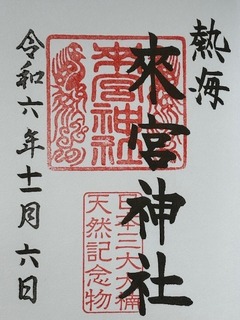 熱海
來宮神社
令和六年十一月六日
来宮神社
日本三大大楠
天然記念物